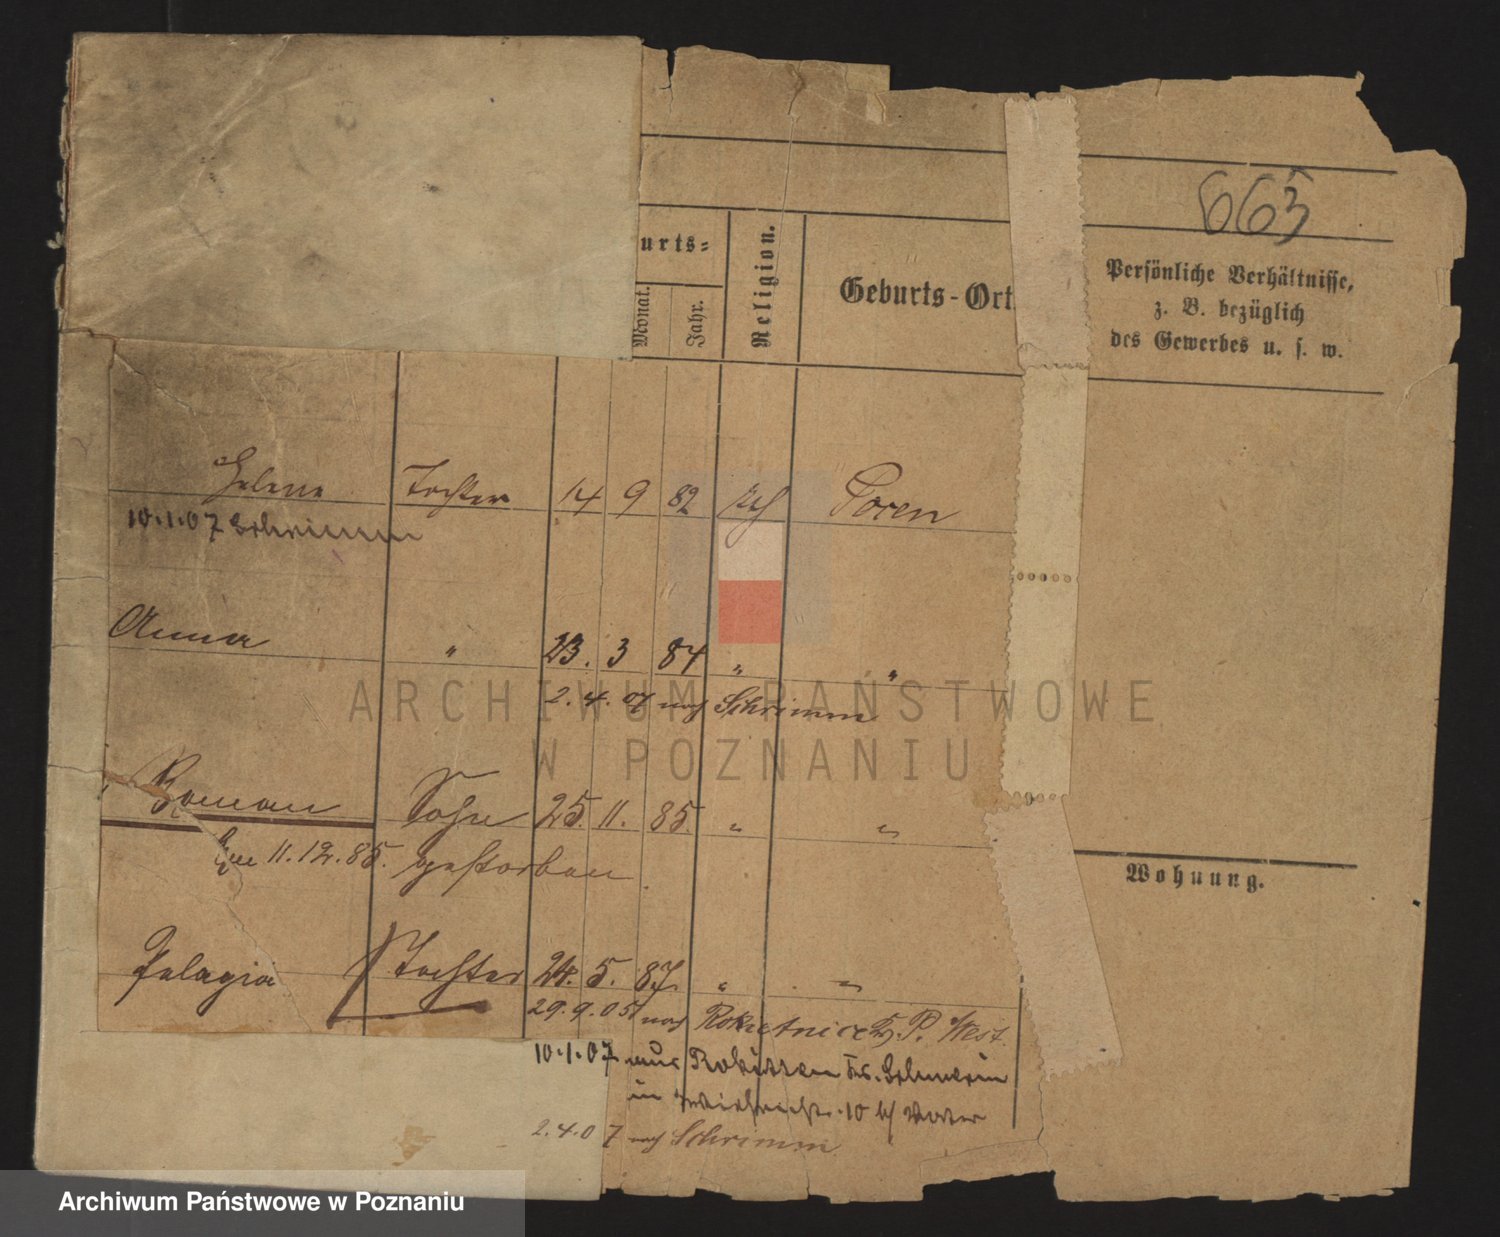 663
urts=
Monat.
Jahr.
Religion.
Geburts-Ort.
Persönliche Verhältnisse,
z. B. bezüglich
des Gewerbes u. s. w.
Helene Tochter 14 9 82 kth Posen
10.1.07 Schrimm
Anna " 23. 3 84 " "
2. 4. 07 nach Schrimm
Roman Sohn 25. 11. 85. " "
Am 11.12.85. gestorben
Wohnung.
Pelagia Tochter 24. 5. 87. " "
29.9.05 nach Rokietnice P. West.
10.1.07 aus
in 10 b/ Vater
2.4.07 nach Schrimm
ARCHIWUM PAŃSTWOWE
W POZNANIU
Archiwum Państwowe w Poznaniu